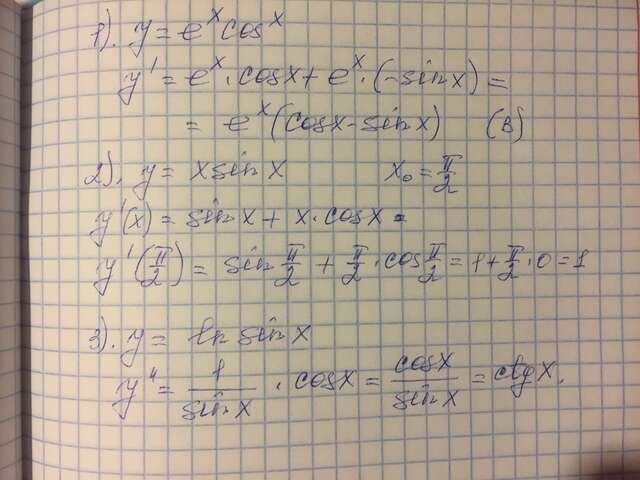 1). y = e^x cos^x
y' = e^x · cosx + e^x · (-sinx) =
= e^x (cosx - sinx) (B)
2). y = x sinx x₀ = π/2
y'(x) = sinx + x · cosx =
y'(π/2) = sin π/2 + π/2 · cos π/2 = 1 + π/2 · 0 = 1
3). y = ln sinx
y'' = 1/sinx · cosx = cosx/sinx = ctgx.